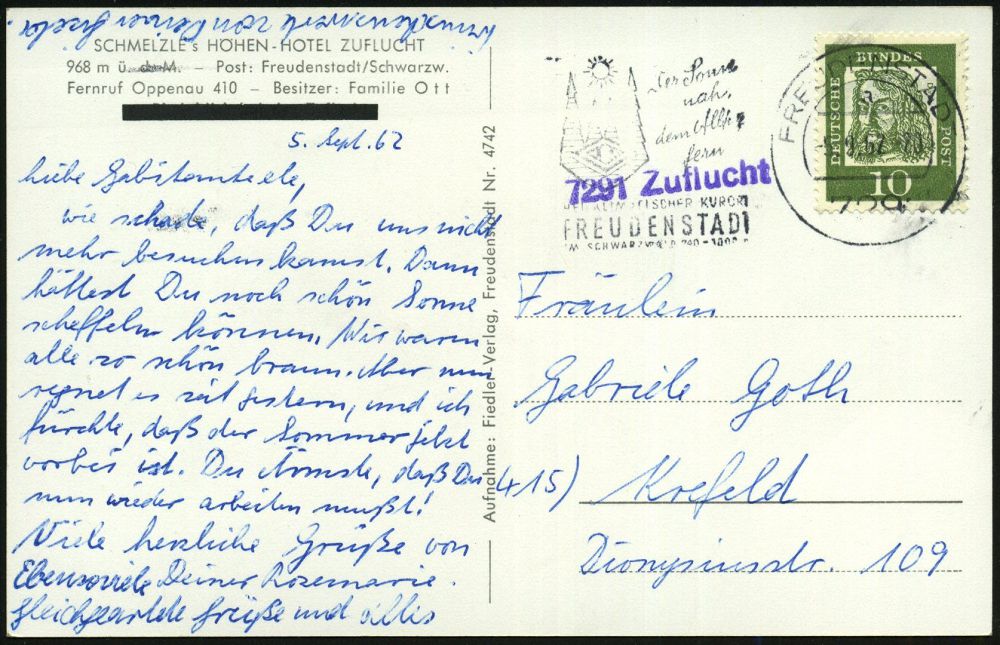 SCHMELZLE's HÖHEN-HOTEL ZUFLUCHT
968 m ü. d. M. – Post: Freudenstadt/Schwarzw.
Fernruf Oppenau 410 – Besitzer: Familie Ott
5. Sept. 62
Liebe Gabitanteele,
wie schade, daß Du uns nicht
mehr besuchen kannst. Dann
hättest Du noch schön Sonne
scheffeln können. Wir waren
alle so schön braun. Aber nun
regnet es seit gestern, und ich
fürchte, daß der Sommer jetzt
vorbei ist. Du Ärmste, daß Du
nun wieder arbeiten mußt!
Viele herzliche Grüße von
Deiner Rosemarie.
Ebensoviele
gleichgeartete Grüße und alles
von Deiner
Aufnahme: Fiedler-Verlag, Freudenstadt Nr. 4742
Der Sonne
nah,
dem Alltag
fern
7291 Zuflucht
KLIMATISCHER KURORT
FREUDENSTADT
IM SCHWARZWALD 740-1000 m
FREUDENSTADT
DEUTSCHE BUNDESPOST
10
Fräulein
Gabriele Goth
(415) Krefeld
Dionysiusstr. 109